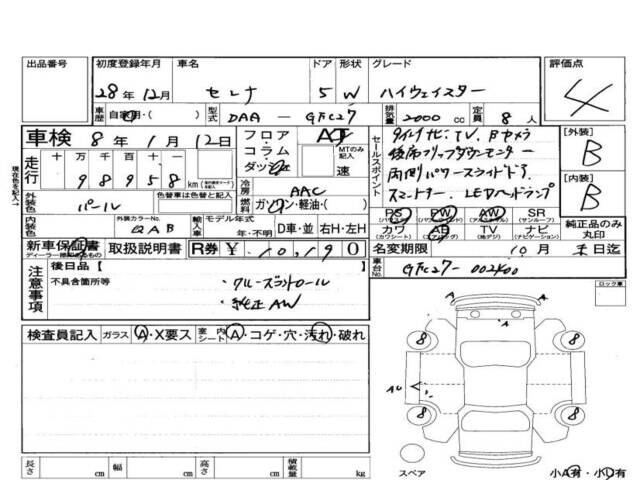 出品番号 初度登録年月 車名 ドア 形状 グレード 評価点
28年 12月 セレナ 5 W ハイウェイスター 4
車歴 自家用・( ) 型式 DAA－GFC27 排気量 2000 cc 定員 8 人
車検 8年 1月 12日 フロア AT
コラム MTのみ記入
ダッシュ 速
走行 十 万 千 百 十 一
9 8 9 5 8 km
冷房 AAC
燃料 ガソリン・軽油・( )
外装色 パール 色替車は色替と記入
内装色 外装カラーNo. QAB 輸入車記入 モデル年式 年・不明 D車・並 右H・左H
セールスポイント
後席フリップダウンモニター
両側パワースライドドア
スマートキー LEDヘッドランプ
[外装] B
[内装] B
PS PW AW SR
(パワステ) (パワーウィンドウ) (アルミホイール) (サンルーフ)
カワ AB TV ナビ
(カワシート) (エアバッグ) (地デジ) (ナビゲーション)
純正品のみ丸印
新車保証書 取扱説明書 R券 ¥ 10,190
ディーラー捺印のあるもの
名変期限 10月 末日迄
車台No. GFC27-002400
現在色を記入→
注意事項 後日品
不具合箇所等
・クルーズコントロール
・純正AW
ロック車
検査員記入 ガラス A・X要ス 室内シート A・コゲ・穴・汚れ・破れ
A
A
8 8
8 8
スペア
小A有・小U有
長さ cm 幅 cm 高さ cm 積載量 kg